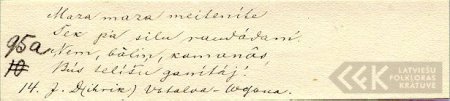 Maza maza meitenīte
Tek pa silu raudādami.
95a
Nem, bālin, kamanās,
10
Būs telīšu ganītāj.
14. J. D(ihrik) Vatalva-Logana.
LATVIEŠU
FOLKLORAS
KRĀTUVE